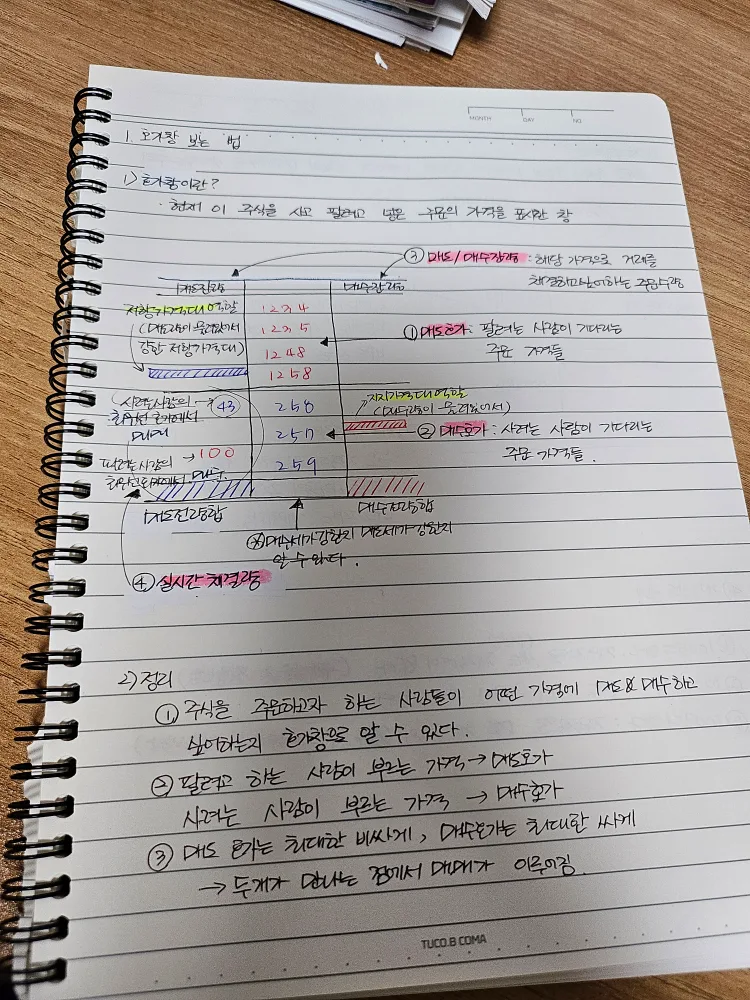 MONTH DAY NO
1. 호가창 보는 법
1) 호가창이란?
· 현재 이 주식을 사고 팔려고 넣은 주문의 가격을 표시한 창
③ 매도/매수잔량 : 해당 가격으로 거래를
체결하고싶어하는 주문수량
매도잔량
매수잔량
저항가격대 역할
(매도량이 몰려있어서
강한 저항가격대)
1234
1235
1248
1258
① 매도호가 : 팔려는 사람이 기다리는
주문 가격들
(사려는 사람의 → 43)
최우선 호가에서
매매
258
257
259
지지가격대 역할
(매수량이 몰려있어서)
② 매수호가 : 사려는 사람이 기다리는
주문 가격들.
팔려는 사람의 → 100
매도전량총합
매수잔량총합
매수세가 강한지 매도세가 강한지
알 수 있다.
④ 실시간 체결량
2) 정리
① 주식을 주문하고자 하는 사람들이 어떤 가격에 매도&매수하고
싶어하는지 호가창으로 알 수 있다.
② 팔려고 하는 사람이 부르는 가격 → 매도호가
사려는 사람이 부르는 가격 → 매수호가
③ 매도 호가는 최대한 비싸게, 매수호가는 최대한 싸게
→ 두개가 만나는 점에서 매매가 이루어짐.
TUCO.B COMA